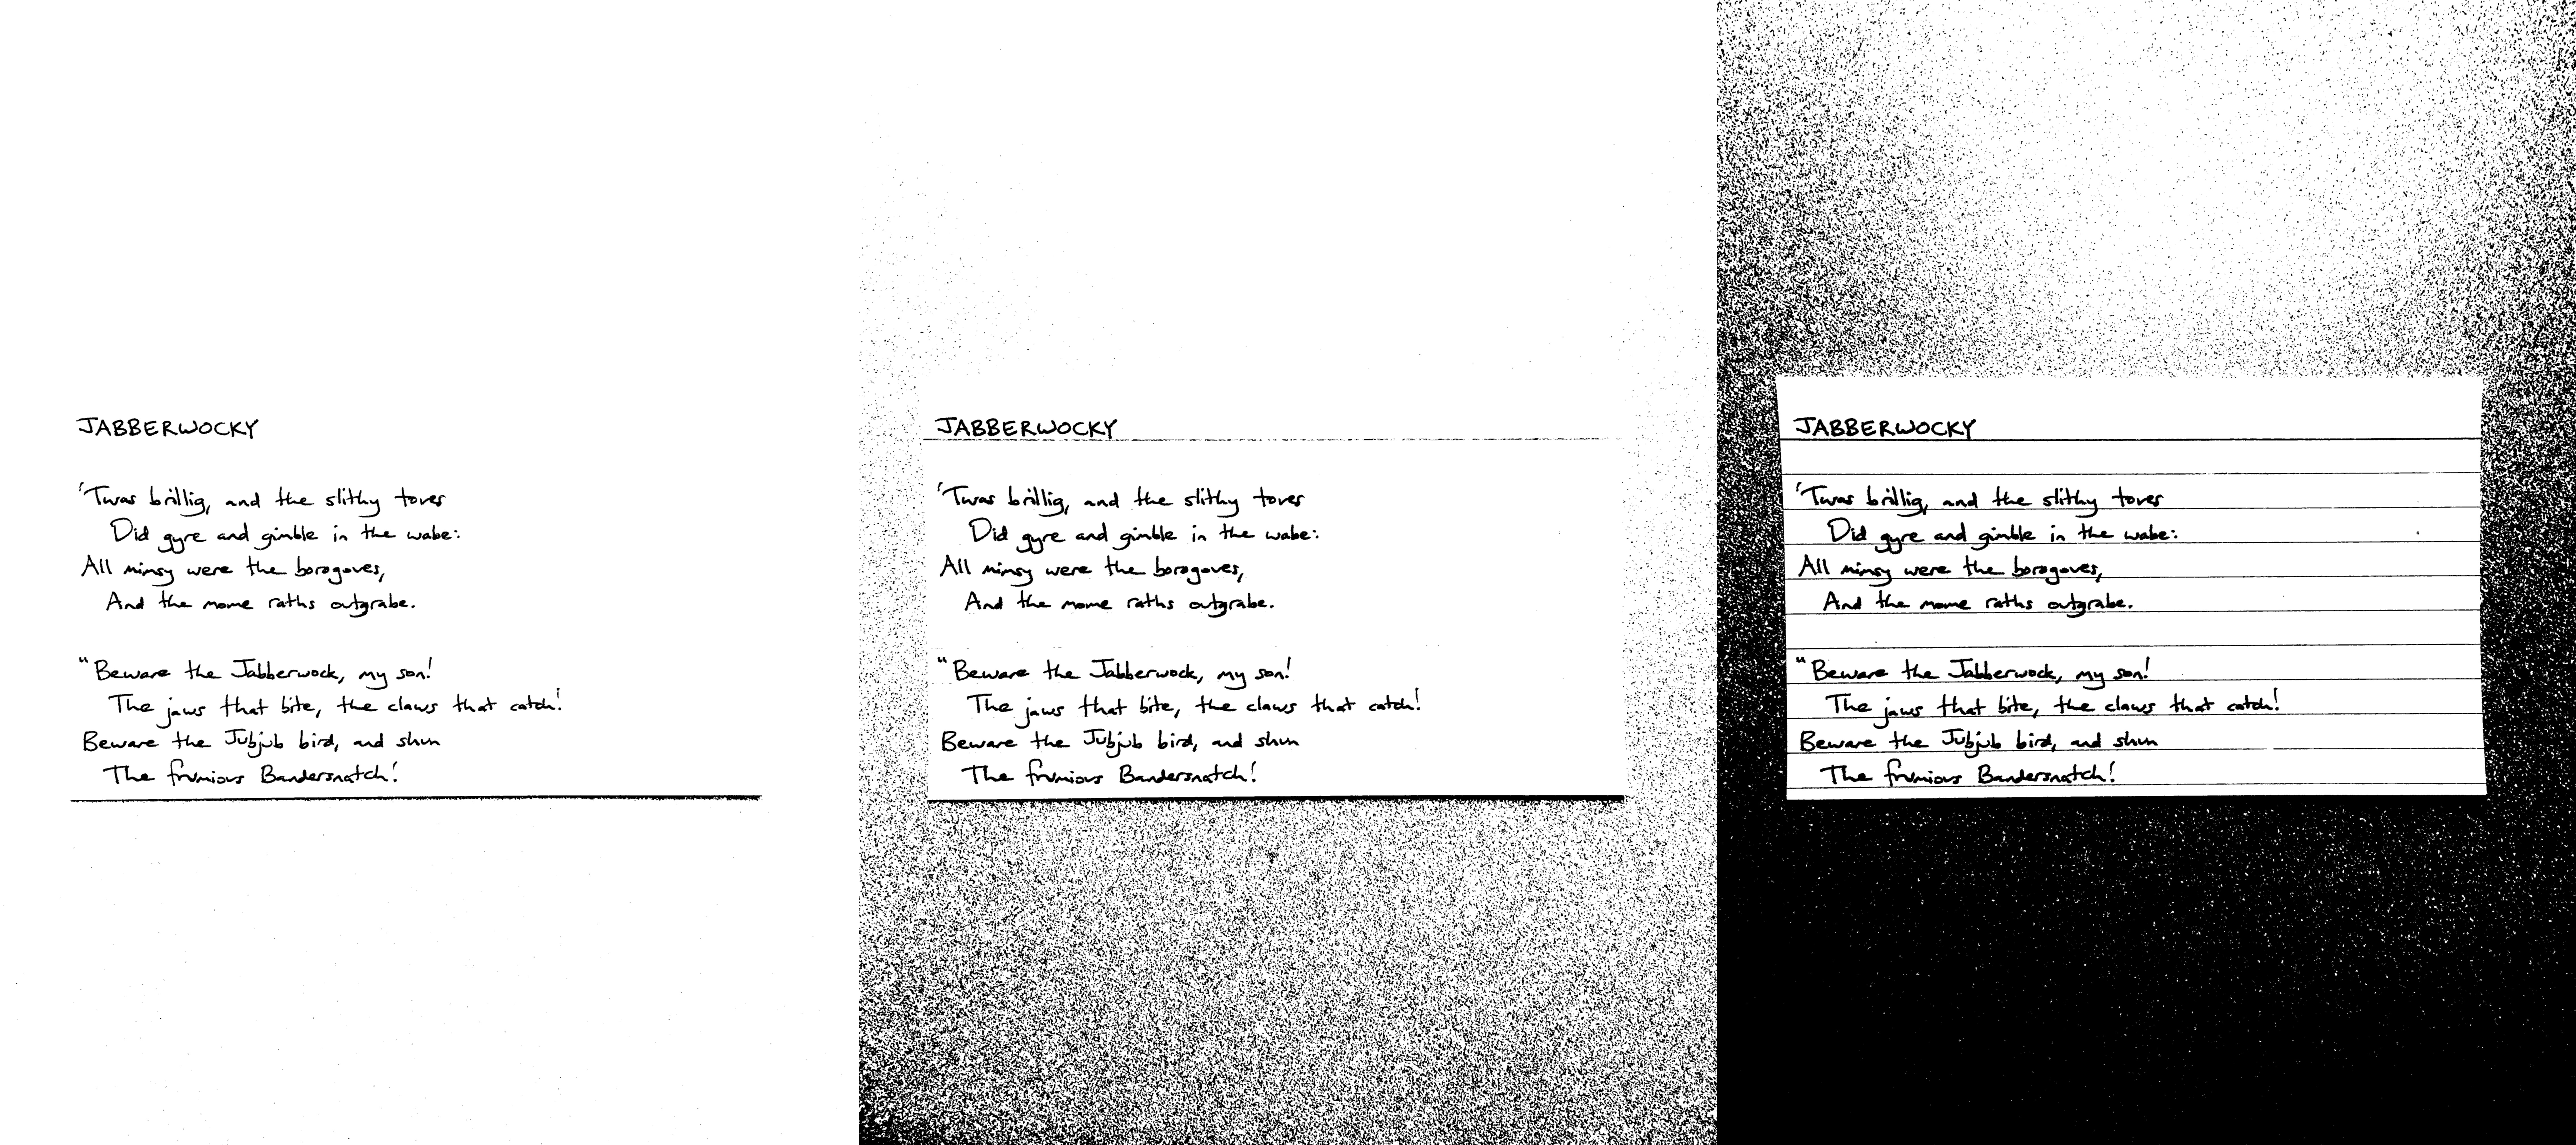 JABBERWOCKY
'Twas brillig, and the slithy toves
Did gyre and gimble in the wabe:
All mimsy were the borogoves,
And the mome raths outgrabe.
"Beware the Jabberwock, my son!
The jaws that bite, the claws that catch!
Beware the Jubjub bird, and shun
The frumious Bandersnatch!
JABBERWOCKY
'Twas brillig, and the slithy toves
Did gyre and gimble in the wabe:
All mimsy were the borogoves,
And the mome raths outgrabe.
"Beware the Jabberwock, my son!
The jaws that bite, the claws that catch!
Beware the Jubjub bird, and shun
The frumious Bandersnatch!
JABBERWOCKY
'Twas brillig, and the slithy toves
Did gyre and gimble in the wabe:
All mimsy were the borogoves,
And the mome raths outgrabe.
"Beware the Jabberwock, my son!
The jaws that bite, the claws that catch!
Beware the Jubjub bird, and shun
The frumious Bandersnatch!